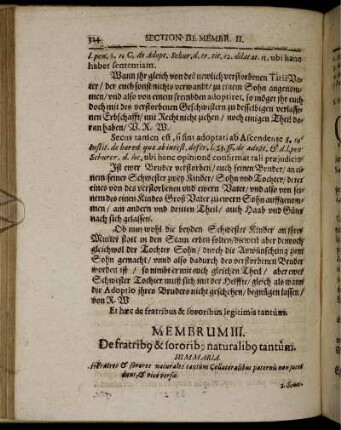 324 SECTION III. MEMBR. II.
l.pen. §. 1. C. de adopt. Schur. d. tr. tit. 12. dilat ar. n. ubi hanc
habet sententiam.
Wann ihr gleich von des newlich verstorbenen Titii Va-
ter / der euch sonst nichts verwandt / zu einem Sohn angenom-
men / und also von einem frembden adoptiret, so möget ihr euch
doch mit des verstorbenen Geschwistern zu desselbigen verlasse-
nen Erbschafft / mit Recht nicht ziehen / noch einigen Theil da-
ran haben / V. R. W.
Secus tamen est, si sint adoptati ab Ascendente §.
Instit. de hered. quæ ab intest. defer. l. ff. de adopt. & d. l. pen.
Schurer. d. loc, ubi hanc opinionē confirmat tali præjudicio:
Ist ewer Bruder verstorben / auch seinen Bruder / an ei-
nem seiner Schwester zwey Kinder / Sohn und Tochter / derer
eines von des verstorbenen und ewern Vater / und also von sei-
nem des einen Kindes Groß Vater zu ewern Sohn auffgenom-
men / am andern und dritten Theil / auch Haab und Güter
nach sich gelassen.
Ob nun wohl die beyden Schwester Kinder an ihrer
Mutter statt in den Stam erben solten / dieweil aber dennoch
gleichwol der Tochter Sohn / durch die Anwünschung zum
Sohn gemacht / und also dadurch des verstorbenen Bruder
worden ist / so nimbt er mit euch gleichen Theil / aber ewer
Schwester Tochter muß sich mit der Helffte / gleich als wann
die Adoptio ihres Bruders nicht geschehen / begnügen lassen /
von R. W
Et hæc de fratribus & sororibus legitimis tantùm.
MEMBRUM III.
De fratrib9 & sororib9 naturalib9 tantùm.
SUMMARIA.
1. Fratres & sorores naturales tantùm Collateralibus paternis non succe-
dunt, & vice versa